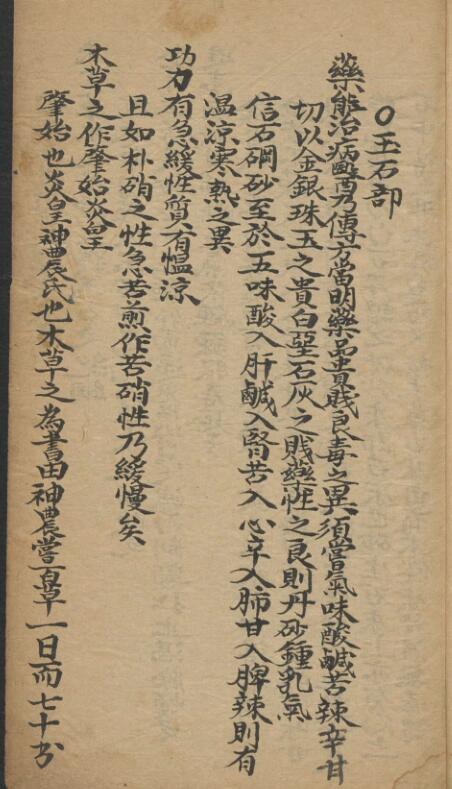 ○玉石部
藥能治病醫乃傳方當明藥品貴賤良毒之異須嘗氣味酸鹹苦辣辛甘
切以金銀珠玉之貴白堊石灰之賤藥性之良則丹砂鍾乳氣
信石碙砂至於五味酸入肝鹹入腎苦入心辛入肺甘入脾辣則有
温涼寒熱之異
功力有急緩性質有愠涼
且如朴硝之性急若煎作苦硝性乃緩慢矣
木草之作肇始炎皇
肇始也炎皇神農氏也木草之為書由神農嘗百草一日而七十